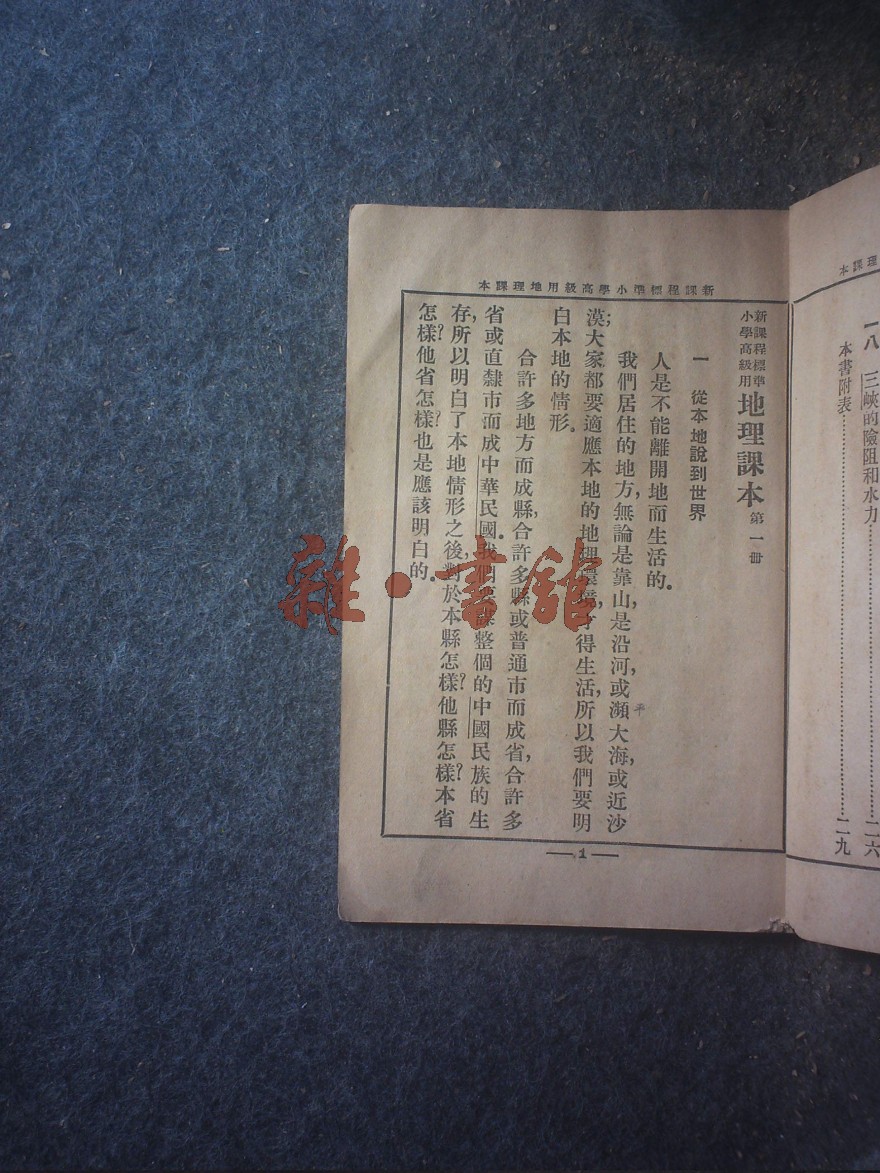 本課理
一八 三峽的險阻和水力……二六
本書附表……二九
新課程標準小學高級用地理課本
新課程標準
小學高級用
地理課本 第一冊
一 從本地說到世界
人是不能離開地而生活的。
我們居住的地方，無論是靠山，是沿河，或瀕大海，或近沙
漠；大家都要適應本地的地理環境，才得生活，所以我們要明
白本地的情形。
合許多地方而成縣，合許多縣或普通市而成省，合許多
省或直隸市而成中華民國。我們要謀整個的中國民族的生
存，所以明白了本地情形之後，對於本縣怎樣？他縣怎樣？本省
怎樣？他省怎樣？也是應該明白的。
1
雜·書館